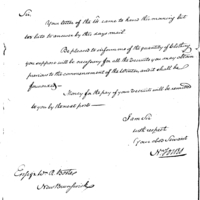 Sir
Your letter of the 16 came to hand this morning but
too late to answer by this days mail
Be pleased to inform me of the quantity of clothing
you suppose will be necessary for all the recruits you may obtain
previous to the commencement of the winter and it shall be
forwarded—
Money for the pay of your recruits will be remitted
to you by the next post—
I am Sir
with respect
Your obt Servant
Capt Wm A
New Brunswick